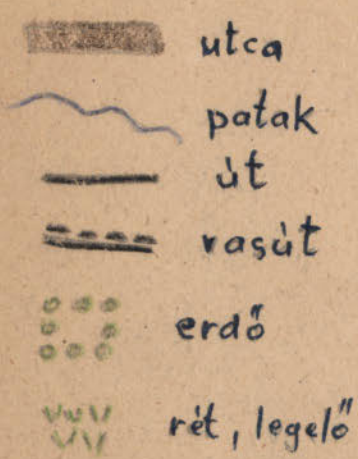 utca
patak
út
vasút
erdő
rét, legelő